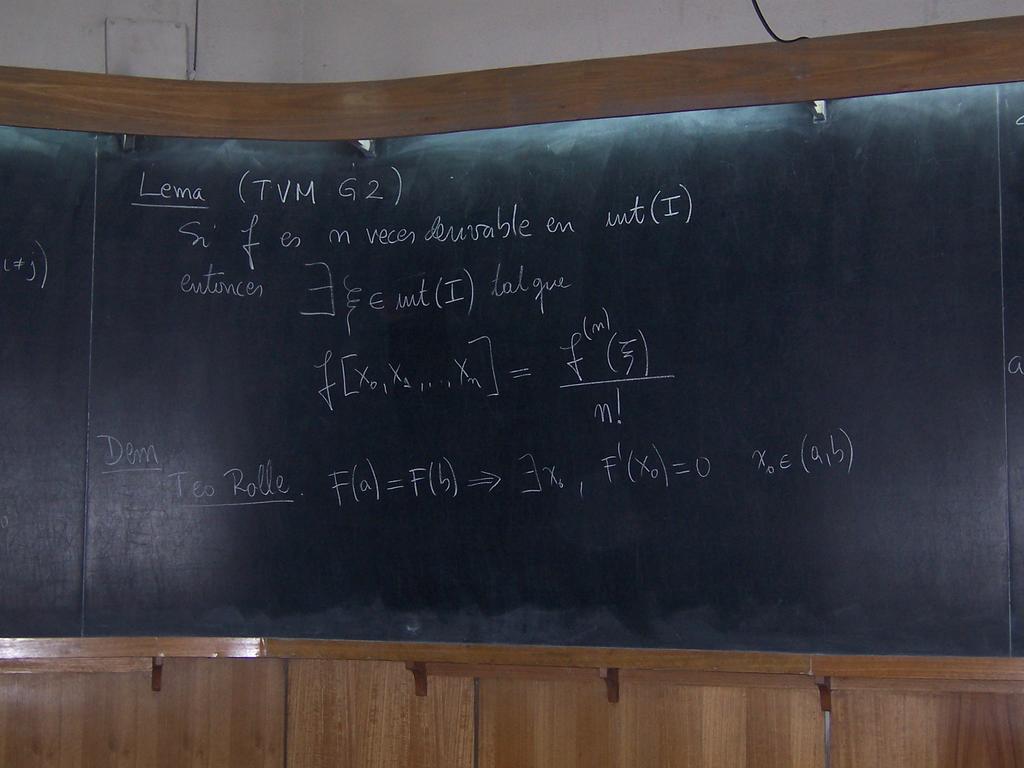 Lema (TVM G2)
Si f es n veces derivable en int(I)
entonces ∃ ξ ∈ int(I) tal que
f[x₀, x₁, ..., xₙ] = f⁽ⁿ⁾(ξ) / n!
Dem
Teo Rolle. F(a) = F(b) ⇒ ∃ x₀, F'(x₀) = 0 x₀ ∈ (a,b)
i ≠ j)
a